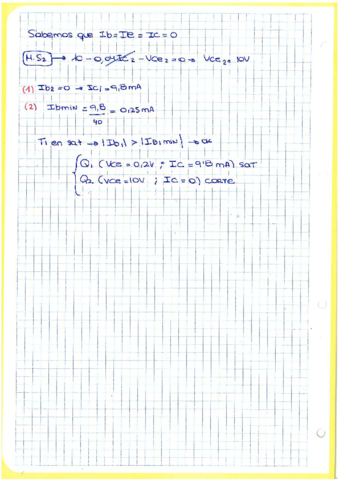 Sabemos que Ib = IE = IC = 0
M.S2 → 10 - 0,04IC2 - VCE2 = 0 → VCE2 = 10V
(1) Ib2 = 0 → IC1 = 9,8mA
(2) Ibmin = 9,8/40 = 0,25mA
T1 en sat → |Ib1| > |IB1 min| → OK
Q1 (VCE = 0,2V ; IC = 9'8 mA) SAT
Q2 (VCE = 10V ; IC = 0) CORTE